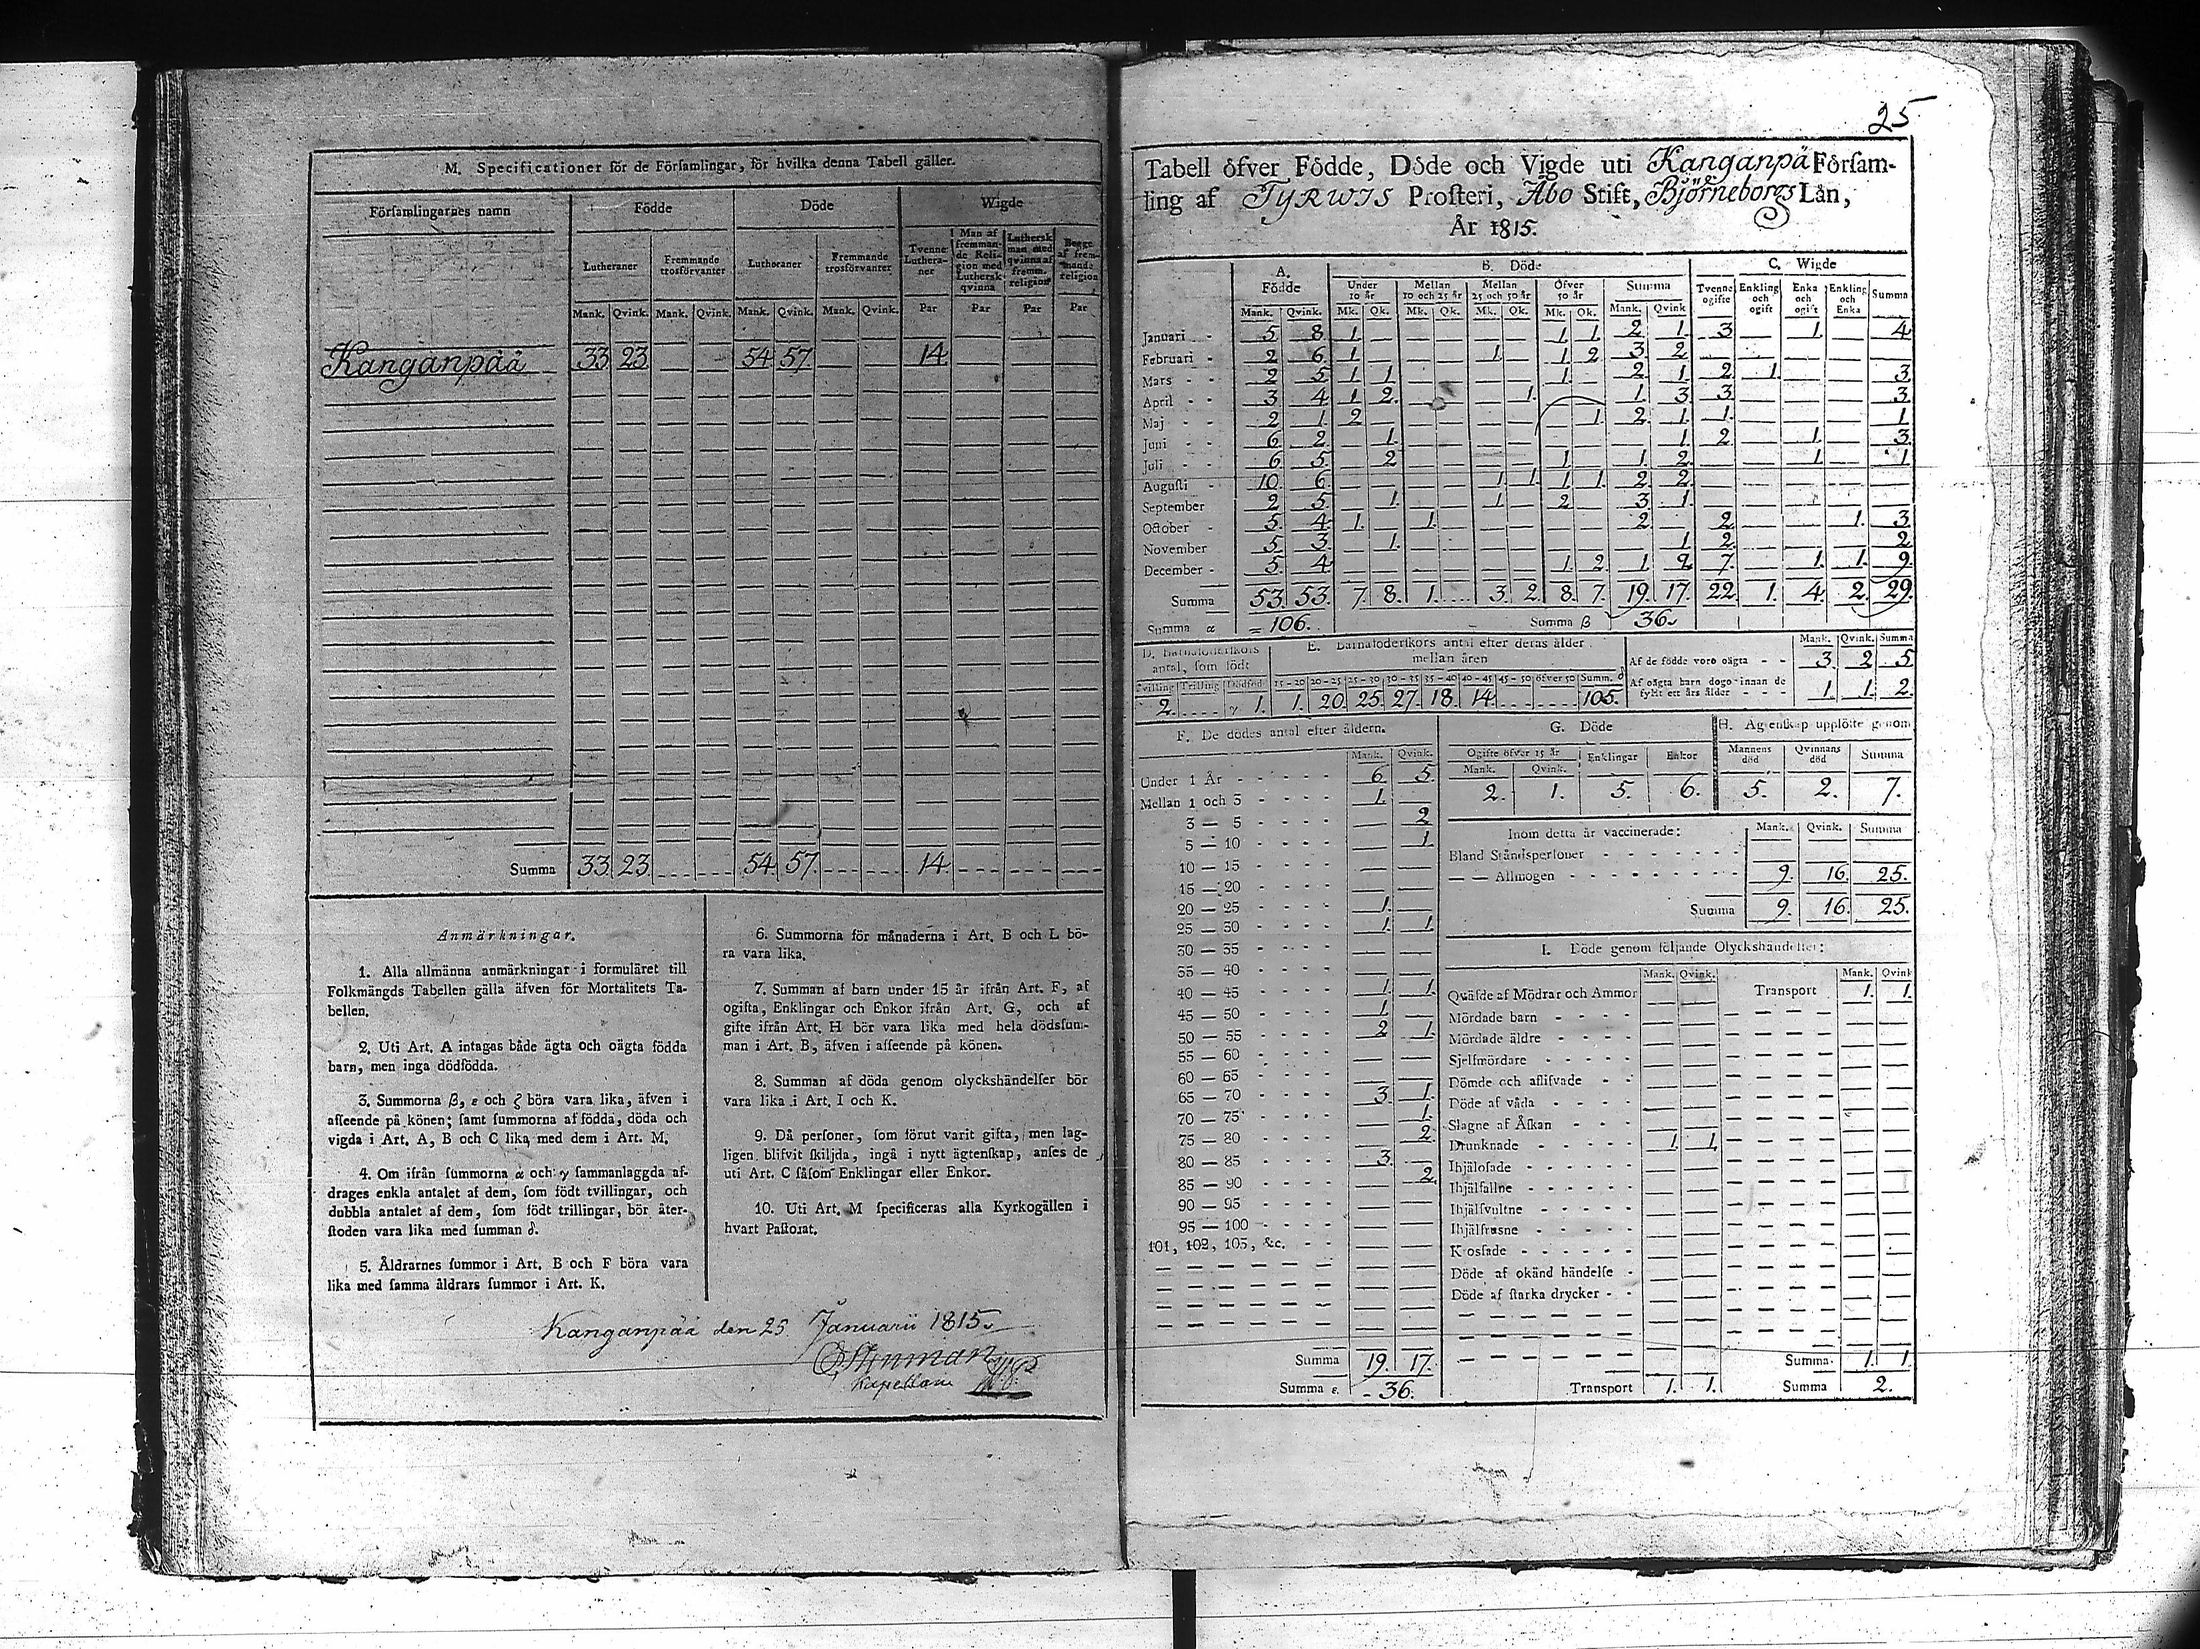 M. Specificationer för de Församlingar, för hvilka denna Tabell gäller.
Församlingarnes namn | Födde | Döde | Wigde
Lutheraner | Fremmande trosförvanter | Lutheraner | Fremmande trosförvanter | Tvenne Lutheraner | 1 Man af fremmande Religion med Luthersk qvinna | Luthersk man med qvinna af fremm. religion | Begge af fremmande religion
Mank. Qvink. Mank. Qvink. Mank. Qvink. Mank. Qvink. Par Par Par Par
Kanganpää 33 23 — — 54 57 — — 14 — — —
Summa 33 23 54 57 14
Anmärkningar.
1. Alla allmänna anmärkningar i formuläret till
Folkmängds Tabellen gälla äfven för Mortalitets Ta-
bellen.
2. Uti Art. A intagas både ägta och oägta födda
barn, men inga dödfödda.
3. Summorna β, ε och ζ böra vara lika, äfven i
afseende på könen; samt summorna af födda, döda och
vigda i Art. A, B och C lika med dem i Art. M.
4. Om ifrån summorna α och γ sammanlaggda af-
drages enkla antalet af dem, som födt tvillingar, och
dubbla antalet af dem, som födt trillingar, bör åter-
stoden vara lika med summan δ.
5. Åldrarnes summor i Art. B och F böra vara
lika med samma åldrars summor i Art. K.
6. Summorna för månaderna i Art. B och L bö-
ra vara lika.
7. Summan af barn under 15 år ifrån Art. F, af
ogifta, Enklingar och Enkor ifrån Art. G, och af
gifte ifrån Art. H bör vara lika med hela dödssum-
man i Art. B, äfven i afseende på könen.
8. Summan af döda genom olyckshändelser bör
vara lika i Art. I och K.
9. Då personer, som förut varit gifta, men lag-
ligen blifvit skiljda, ingå i nytt ägtenskap, anses de
uti Art. C såsom Enklingar eller Enkor.
10. Uti Art. M specificeras alla Kyrkogällen i
hvart Pastorat.
Kanganpää den 25 Januarii 1815.
Stenman
Kapellan
25
Tabell öfver Födde, Döde och Vigde uti Kanganpä Församling
af TYRWIS Prosteri, Åbo Stift, Björneborgs Län,
År 1815.
A. Födde | B. Döde | C. Wigde
Under 10 år | Mellan 10 och 25 år | Mellan 25 och 50 år | Öfver 50 år | Summa | Tvenne ogifte | Enkling och ogift | Enka och ogift | Enkling och Enka | Summa
Mank. Qvink. Mk. Qk. Mk. Qk. Mk. Qk. Mk. Qk. Mank. Qvink
Januari 5 8 1 — — — — — 1 1 2 1 3 — 1 — 4
Februari 2 6 1 — — — 1 — 1 2 3 2 — — — — —
Mars 2 5 1 1 — — — — 1 — 2 1 2 1 — — 3
April 3 4 1 2 — — — 1 — — 1 3 3 — — — 3
Maj 2 1 2 — — — — — — 1 2 1 1 — — — 1
Juni 6 2 — 1 — — — — — — — 1 2 — 1 — 3
Juli 6 5 — 2 — — — — 1 — 1 2 — — 1 — 1
Augusti 10 6 — — — — 1 1 1 1 2 2 — — — — —
September 2 5 — 1 — — 1 — 2 — 3 1 — — — — —
October 5 4 1 — 1 — — — — — 2 — 2 — — 1 3
November 5 3 — 1 — — — — — — — 1 2 — — — 2
December 5 4 — — — — — — 1 2 1 2 7 — 1 1 9
Summa 53 53 7 8 1 3 2 8 7 19 17 22 1 4 2 29
Summa α = 106. Summa β 36
D. Barnaföderskors antal, som födt
Tvilling Trilling Dödföd
2 γ 1
E. Barnaföderskors antal efter deras ålder mellan åren
15–20 20–25 25–30 30–35 35–40 40–45 45–50 öfver 50 Summ. δ
1 20 25 27 18 14 105
Mank. Qvink. Summa
Af de födde voro oägta 3 2 5
Af oägta barn dogo innan de fyllt ett års ålder 1 1 2
F. De dödes antal efter åldern.
Mank. Qvink.
Under 1 År 6 5
Mellan 1 och 3 1 —
3 — 5 — 2
5 — 10 — 1
10 — 15 — —
15 — 20 — —
20 — 25 1 —
25 — 30 1 1
30 — 35 — —
35 — 40 — —
40 — 45 1 1
45 — 50 1 —
50 — 55 2 1
55 — 60 — —
60 — 65 — —
65 — 70 3 1
70 — 75 — 1
75 — 80 — 2
80 — 85 3 —
85 — 90 — 2
90 — 95 — —
95 — 100 — —
101, 102, 103, &c. — —
Summa 19 17
Summa ε 36.
G. Döde
Ogifte öfver 15 år | Enklingar | Enkor
Mank. Qvink.
2. 1. 5. 6.
H. Ägtenskap upplöste genom
Mannens död | Qvinnans död | Summa
5. 2. 7.
Inom detta år vaccinerade: Mank. Qvink. Summa
Bland Ståndspersoner — — —
— — Allmogen 9. 16. 25.
Summa 9. 16. 25.
I. Döde genom följande Olyckshändelser:
Mank. Qvink. Mank. Qvink
Qväfde af Mödrar och Ammor — — Transport 1. 1.
Mördade barn
Mördade äldre
Sjelfmördare
Dömde och aflifvade
Döde af våda
Slagne af Åskan
Drunknade 1 1
Ihjälosade
Ihjälfallne
Ihjälsvultne
Ihjälfrusne
Krossade
Döde af okänd händelse
Döde af starka drycker
Summa 1. 1.
Transport 1. 1. Summa 2.